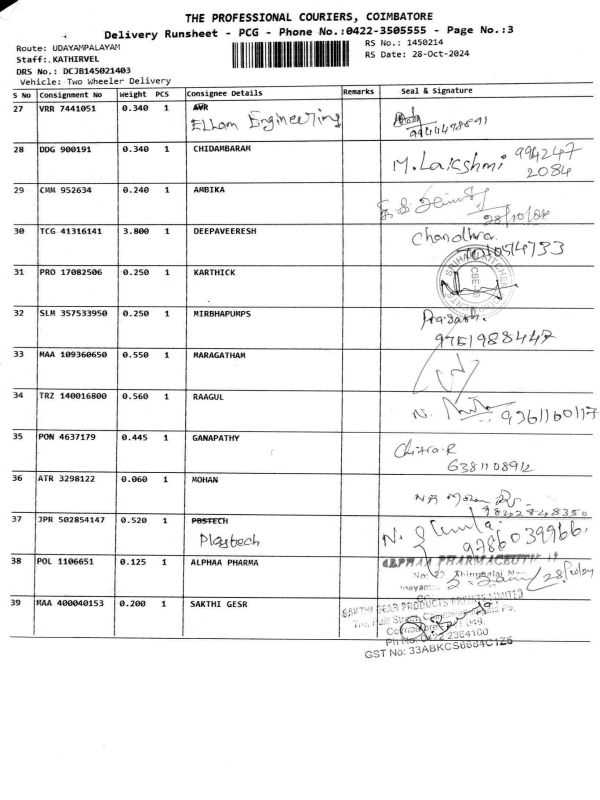 THE PROFESSIONAL COURIERS, COIMBATORE
Delivery Runsheet - PCG - Phone No.:0422-3505555 - Page No.:3
Route: UDAYAMPALAYAM
RS No.: 1450214
Staff: KATHIRVEL
RS Date: 28-Oct-2024
DRS No.: DCJB145021403
Vehicle: Two Wheeler Delivery
S No Consignment No Weight PCS Consignee Details Remarks Seal & Signature
27 VRR 7441051 0.340 1 AVR
Ellam Engineering
28 DDG 900191 0.340 1 CHIDAMBARAM M. Lakshmi 994247
2084
29 CMM 952634 0.240 1 AMBIKA
28/10/24
30 TCG 41316141 3.800 1 DEEPAVEERESH Chandhra
31 PRO 17082506 0.250 1 KARTHICK
32 SLM 357533950 0.250 1 MIRBHAPUMPS Prasath.
9751988447
33 MAA 109360650 0.550 1 MARAGATHAM
34 TRZ 140016800 0.560 1 RAAGUL N. 9361160117
35 PON 4637179 0.445 1 GANAPATHY Chitra.R
6381108912
36 ATR 3298122 0.060 1 MOHAN
9842848350
37 JPR 502854147 0.520 1 PBSTECH
Plastech
9786039966
38 POL 1106651 0.125 1 ALPHAA PHARMA ALPHAA PHARMACEUTI
28/10/24
39 MAA 400040153 0.200 1 SAKTHI GESR SAKTHI GEAR PRODUCTS PRIVATE LIMITED
Ph No: 0422 2364100
GST No: 33ABKCS6684C1Z6